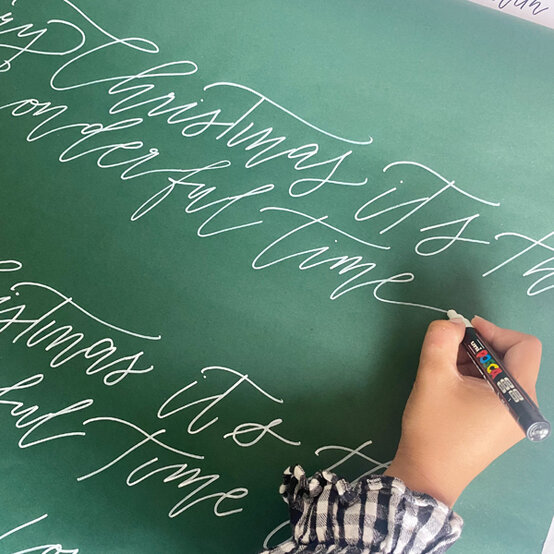 ry Christmas it's th
onderful time
istmas it's t
ful time
uni POSCA